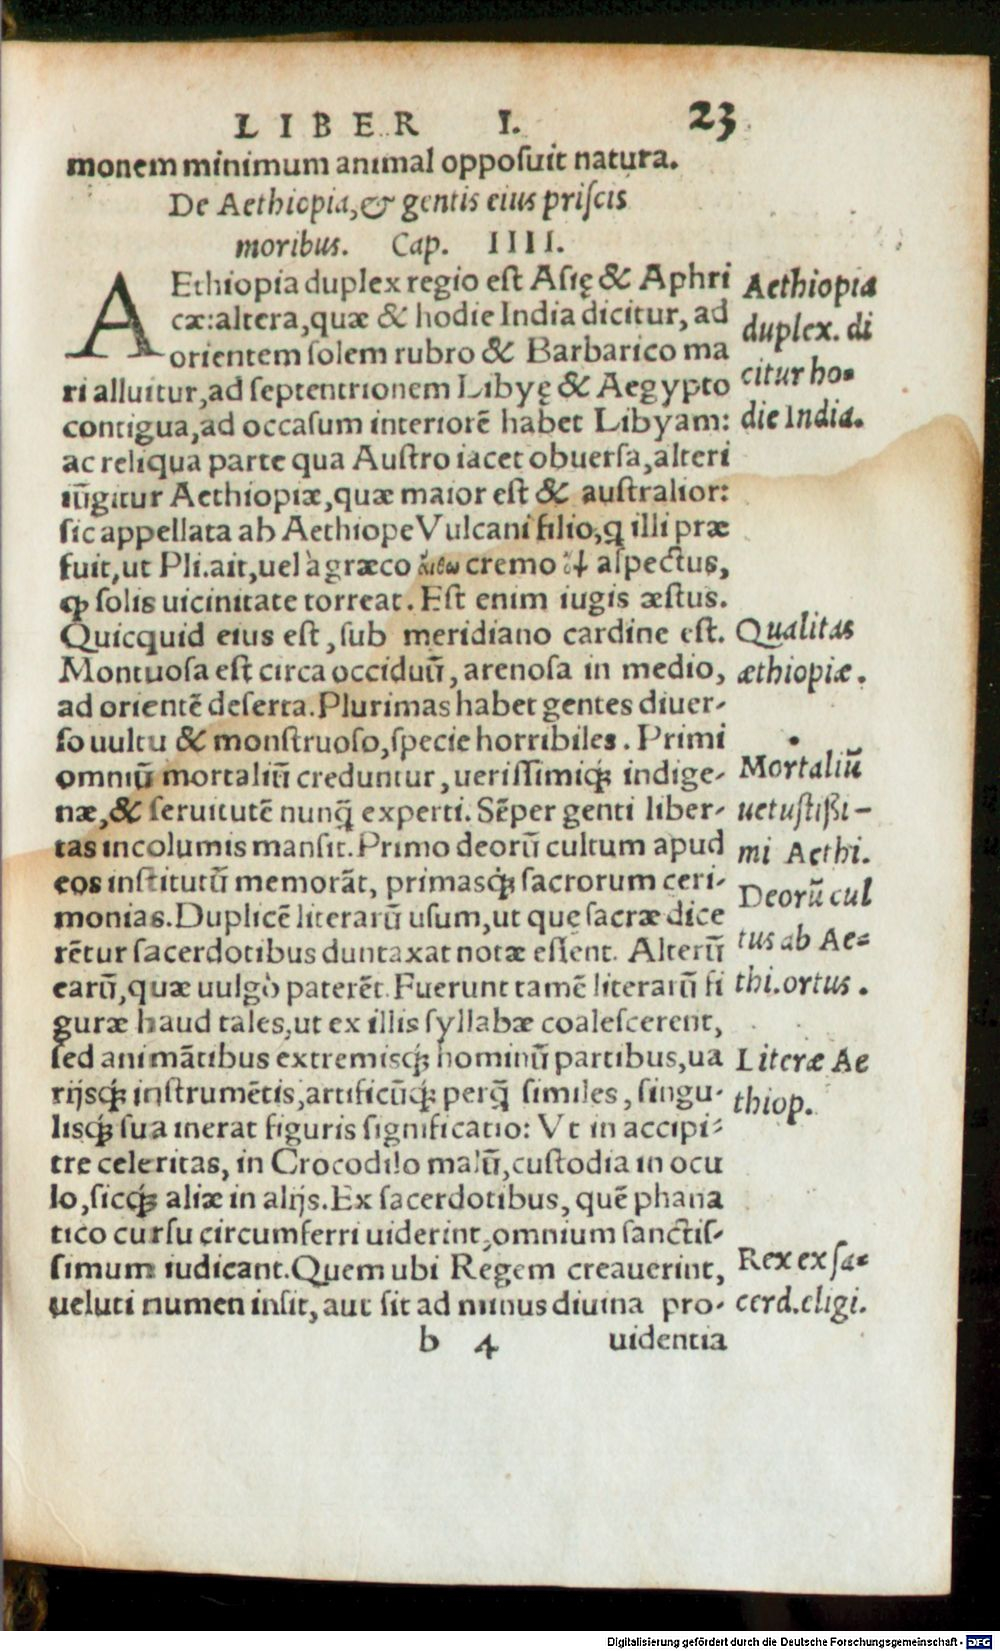 LIBER I. 23
monem minimum animal opposuit natura.
De Aethiopia, & gentis eius priscis
moribus. Cap. IIII.
AEthiopia duplex regio est Asię & Aphri
cæ: altera, quæ & hodie India dicitur, ad
orientem solem rubro & Barbarico ma
ri alluitur, ad septentrionem Libyę & Aegypto
contigua, ad occasum interiorē habet Libyam:
ac reliqua parte qua Austro iacet obuersa, alteri
iūgitur Aethiopiæ, quæ maior est & australior:
sic appellata ab Aethiope Vulcani filio, q illi præ
fuit, ut Pli. ait, uel à græco cremo aspectus,
ꝙ solis uicinitate torreat. Est enim iugis æstus.
Quicquid eius est, sub meridiano cardine est.
Montuosa est circa occiduū, arenosa in medio,
ad orientē deserta. Plurimas habet gentes diuer-
so uultu & monstruoso, specie horribiles. Primi
omniū mortaliū creduntur, uerissimiq́; indige-
næ, & seruitutē nunq̄ experti. Sēper genti liber-
tas incolumis mansit. Primo deorū cultum apud
eos institutū memorāt, primasq́; sacrorum ceri-
monias. Duplicē literarū usum, ut quę sacræ dice
rētur sacerdotibus duntaxat notæ essent. Alterū
earū, quæ uulgò paterēt. Fuerunt tamē literarū fi
guræ haud tales, ut ex illis syllabæ coalescerent,
sed animātibus extremisq́; hominū partibus, ua
rijsq́; instrumētis, artificūq́; perq̄ similes, singu-
lisq́; sua inerat figuris significatio: Vt in accipi-
tre celeritas, in Crocodilo malū, custodia in ocu
lo, sicq́; aliæ in alijs. Ex sacerdotibus, quē phana
tico cursu circumferri uiderint, omnium sanctis-
simum iudicant. Quem ubi Regem creauerint,
ueluti numen insit, aut sit ad minus diuina pro-
b 4 uidentia
Aethiopia
duplex. di
citur ho=
die India.
Qualitas
æthiopiæ.
Mortaliū
uetustißi-
mi Aethi.
Deorū cul
tus ab Ae=
thi. ortus.
Literæ Ae
thiop.
Rex ex sa=
cerd. eligi.
Digitalisierung gefördert durch die Deutsche Forschungsgemeinschaft - DFG